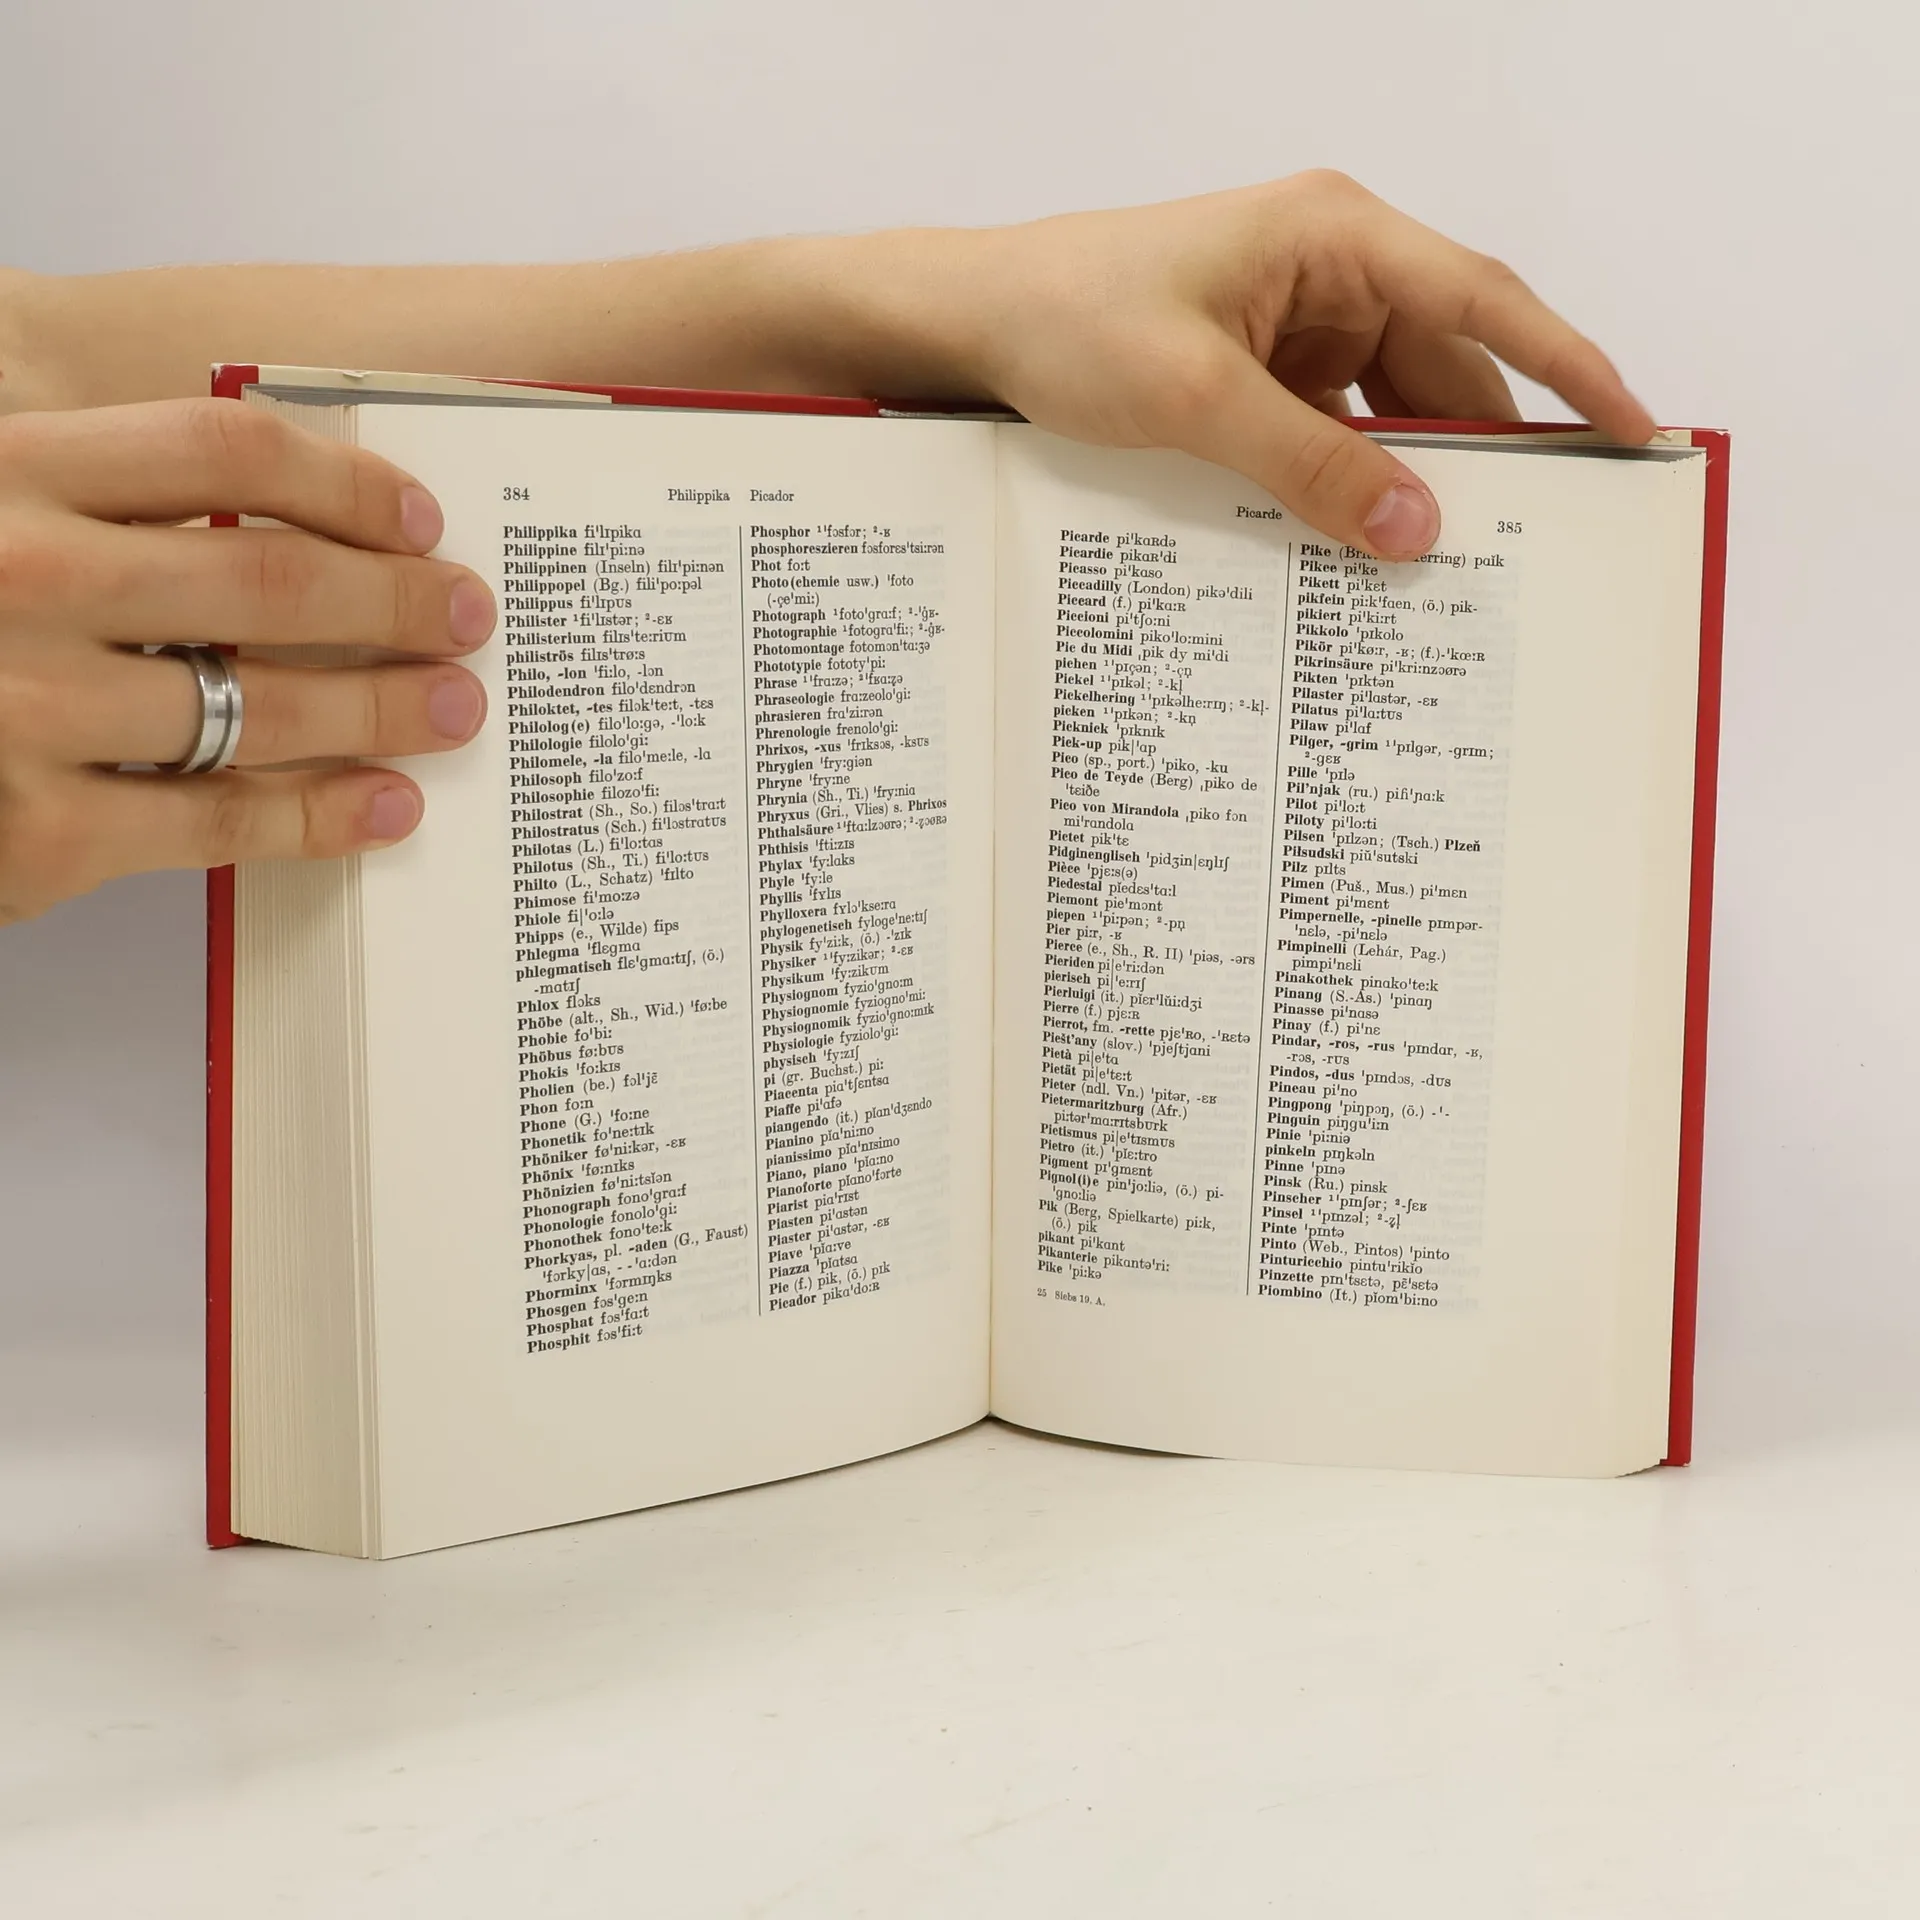 384 Philippika Picador
Philippika fiˈlɪpika
Philippine filɪˈpiːnə
Philippinen (Inseln) filɪˈpiːnən
Philippopel (Bg.) filiˈpoːpəl
Philippus fiˈlɪpʊs
Philister ¹ˈfiˈlɪstər; ²-ɛʀ
Philisterium filɪsˈteːriʊm
philiströs filɪsˈtrøːs
Philo, -lon ˈfiːlo, -lɔn
Philodendron filoˈdɛndrɔn
Philoktet, -tes filɔkˈteːt, -tɛs
Philolog(e) filoˈloːgə, -ˈloːk
Philologie filoloˈgiː
Philomele, -la filoˈmeːle, -la
Philosoph filoˈzoːf
Philosophie filozoˈfiː
Philostrat (Sh., So.) filɔsˈtraːt
Philostratus (Sch.) fiˈlɔstratʊs
Philotas (L.) fiˈloːtas
Philotus (Sh., Ti.) fiˈloːtʊs
Philto (L., Schatz) ˈfɪlto
Phimose fiˈmoːzə
Phiole fi|ˈoːlə
Phipps (e., Wilde) fips
Phlegma ˈflɛgma
phlegmatisch flɛˈgmaːtɪʃ, (ö.)
-matɪʃ
Phlox flɔks
Phöbe (alt., Sh., Wid.) ˈføːbe
Phobie foˈbiː
Phöbus føːbʊs
Phokis ˈfoːkɪs
Pholien (be.) fɔlˈjɛ̃
Phon foːn
Phone (G.) ˈfoːne
Phonetik foˈneːtɪk
Phöniker føˈniːkər, -ɛʀ
Phönix ˈføːnɪks
Phönizien føˈniːtsĭən
Phonograph fonoˈgraːf
Phonologie fonoloˈgiː
Phonothek fonoˈteːk
Phorkyas, pl. -aden (G., Faust)
ˈfɔrky|as, - - ˈaːdən
Phorminx ˈfɔrmɪŋks
Phosgen fɔsˈgeːn
Phosphat fɔsˈfaːt
Phosphit fɔsˈfiːt
Phosphor ¹ˈfɔsfɔr; ²-ʀ
phosphoreszieren fɔsforɛsˈtsiːrən
Phot foːt
Photo(chemie usw.) ˈfoto
(-çeˈmiː)
Photograph ¹fotoˈgraːf; ²-ˈg̊ʀ-
Photographie ¹fotograˈfiː; ²-g̊ʀ-
Photomontage fotomɔnˈtaːʒə
Phototypie fototyˈpiː
Phrase ¹ˈfraːzə; ²ˈfʀaːz̥ə
Phraseologie fraːzeoloˈgiː
phrasieren fraˈziːrən
Phrenologie frenoloˈgiː
Phrixos, -xus ˈfriksɔs, -ksʊs
Phrygien ˈfryːgiən
Phryne ˈfryːne
Phrynia (Sh., Ti.) ˈfryːnia
Phryxus (Gri., Vlies) s. Phrixos
Phthalsäure ¹ˈftaːlzɔørə; ²-z̥ɔøʀə
Phthisis ˈftiːzɪs
Phylax ˈfyːlaks
Phyle ˈfyːle
Phyllis ˈfʏlɪs
Phylloxera fʏlɔˈkseːra
phylogenetisch fylogeˈneːtɪʃ
Physik fyˈziːk, (ö.) -ˈzɪk
Physiker ¹ˈfyːzikər; ²-ɛʀ
Physikum ˈfyːzikʊm
Physiognom fyzioˈgnoːm
Physiognomie fyziognoˈmiː
Physiognomik fyzioˈgnoːmɪk
Physiologie fyzioloˈgiː
physisch ˈfyːzɪʃ
pi (gr. Buchst.) piː
Piacenta piaˈtʃɛntsa
Piaffe piˈafə
piangendo (it.) pĭanˈdʒɛndo
Pianino pĭaˈniːno
pianissimo pĭaˈnɪsimo
Piano, piano ˈpĭaːno
Pianoforte pĭanoˈfɔrte
Piarist piaˈrɪst
Piasten piˈastən
Piaster piˈastər, -ɛʀ
Piave ˈpĭaːve
Piazza ˈpĭatsa
Pic (f.) pik, (ö.) pɪk
Picador pikaˈdoːʀ
Picarde 385
Picarde piˈkaʀdə
Picardie pikaʀˈdi
Picasso piˈkaso
Piccadilly (London) pikəˈdili
Piccard (f.) piˈkaːʀ
Piccioni piˈtʃoːni
Piccolomini pikoˈloːmini
Pic du Midi ˌpik dy miˈdi
pichen ¹ˈpɪçən; ²-çn̩
Pickel ¹ˈpɪkəl; ²-kl̩
Pickelhering ¹ˈpɪkəlheːrɪŋ; ²-kl̩-
picken ¹ˈpɪkən; ²-kn̩
Picknick ˈpɪknɪk
Pick-up pik|ˈap
Pico (sp., port.) ˈpiko, -ku
Pico de Teyde (Berg) ˌpiko de
ˈteiðe
Pico von Mirandola ˌpiko fɔn
miˈrandola
Pictet pikˈtɛ
Pidginenglisch ˈpidʒin|ɛŋlɪʃ
Pièce ˈpjɛːs(ə)
Piedestal pĭedɛsˈtaːl
Piemont pieˈmɔnt
piepen ¹ˈpiːpən; ²-pn̩
Pier piːr, -ʀ
Pierce (e., Sh., R. II) ˈpiəs, -ərs
Pieriden pi|eˈriːdən
pierisch pi|ˈeːrɪʃ
Pierluigi (it.) pĭerˈlŭiːdʒi
Pierre (f.) pjɛːʀ
Pierrot, fm. -rette pjɛˈʀo, -ˈʀɛtə
Piešt'any (slov.) ˈpjeʃtjani
Pietà pi|eˈta
Pietät pi|eˈtɛːt
Pieter (ndl. Vn.) ˈpitər, -ɛʀ
Pietermaritzburg (Afr.)
piːtərˈmaːrɪtsbʊrk
Pietismus pi|eˈtɪsmʊs
Pietro (it.) ˈpĭɛːtro
Pigment pɪˈgmɛnt
Pignol(i)e pinˈjoːliə, (ö.) pi-
ˈgnoːliə
Pik (Berg, Spielkarte) piːk,
(ö.) pik
pikant piˈkant
Pikanterie pikantəˈriː
Pike ˈpiːkə
25 Siebs 19. A.
Pike erring) paĭk
Pikee piˈke
Pikett piˈkɛt
pikfein piːkˈfaen, (ö.) pik-
pikiert piˈkiːrt
Pikkolo ˈpɪkolo
Pikör piˈkøːr, -ʀ; (f.)-ˈkœːʀ
Pikrinsäure piˈkriːnzɔørə
Pikten ˈpɪktən
Pilaster piˈlastər, -ɛʀ
Pilatus piˈlaːtʊs
Pilaw piˈlaf
Pilger, -grim ¹ˈpɪlgər, -grɪm;
²-gɛʀ
Pille ˈpɪlə
Pil'njak (ru.) pilˈɲaːk
Pilot piˈloːt
Piloty piˈloːti
Pilsen ˈpɪlzən; (Tsch.) Plzeň
Pilsudski piŭˈsutski
Pilz pɪlts
Pimen (Puš., Mus.) piˈmɛn
Piment piˈmɛnt
Pimpernelle, -pinelle pɪmpər-
ˈnɛlə, -piˈnɛlə
Pimpinelli (Lehár, Pag.)
pimpiˈnɛli
Pinakothek pinakoˈteːk
Pinang (S.-As.) ˈpinaŋ
Pinasse piˈnasə
Pinay (f.) piˈnɛ
Pindar, -ros, -rus ˈpɪndar, -ʀ,
-rɔs, -rʊs
Pindos, -dus ˈpɪndɔs, -dʊs
Pineau piˈno
Pingpong ˈpiŋpɔŋ, (ö.) -ˈ-
Pinguin piŋguˈiːn
Pinie ˈpiːniə
pinkeln pɪŋkəln
Pinne ˈpɪnə
Pinsk (Ru.) pinsk
Pinscher ¹ˈpɪnʃər; ²-ʃɛʀ
Pinsel ¹ˈpɪnzəl; ²-z̥l̩
Pinte ˈpɪntə
Pinto (Web., Pintos) ˈpinto
Pinturicchio pintuˈrikĭo
Pinzette pɪnˈtsɛtə, pɛ̃ˈsɛtə
Piombino (It.) pĭomˈbiːno